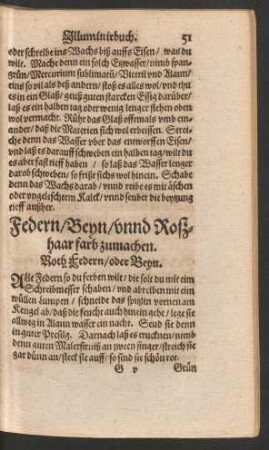 Illuminirbuch. 51
oder schreibe ins Wachs biß auffs Eisen / was du
wilt. Mache denn ein solch Etzwasser / nimb span-
grün / Mercurium sublimatũ / Vitreil vnd Alaun /
eins so vil als deß andern / stoß es alles wol / vnd thu
es in ein Glaß / geuß guten starcken Essig darüber /
laß es ein halben tag oder wenig lenger stehen oben
wol vermacht. Rühr das Glaß offtermals vmb ein-
ander / daß die Materien sich wol erbeissen. Strei-
che denn das Wasser vber das entworffen Eisen /
vnd laß es darauff schweben ein halben tag / wilt du
es aber fast tieff haben / so laß das Wasser lenger
darob schweben / so frißt sichs wol hinein. Schabe
denn das Wachs darab / vnnd reibe es mit äschen
oder vngeleschtem Kalck / vnnd seuber die beytzung
tieff außher.
Federn / Beyn / vnnd Roß-
haar farb zumachen.
Roth Federn / oder Beyn.
Alle Federn so du ferben wilt / die solt du mit eim
Schreibmesser schaben / vnd abreiben mit eim
wüllen äumpen / schneide das spitzlin vornen am
Kengel ab / daß die feucht auch hinein gehe / lege sie
allweg in Alaun wasser ein nacht. Seud sie denn
in guter Presilg. Darnach laß es trucknen / nimb
denn guten Malerfirniß an zween finger / streich sie
gar dünn an / steck sie auff / so sind sie schön rot.
G v Grün